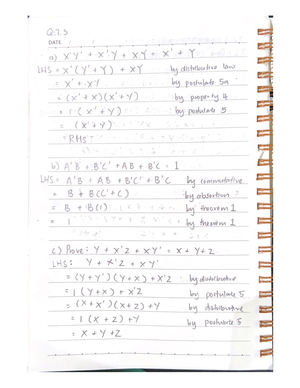 Q.7.3
DATE
a) X'Y' + X'Y + XY = X' + Y
LHS = X'(Y' + Y) + XY by distributive law
= X' + XY by postulate 5a
= (X' + X)(X' + Y) by property 4
= 1 (X' + Y) by postulate 5
= (X' + Y)
= RHS
b) A'B + B'C' + AB + B'C = 1
LHS = A'B + AB + B'C' + B'C by commutative
= B + B'(C' + C) by absorbtion
= B + B'(1) by theorem 1
= 1 by theorem 1
c) Prove: Y + X'Z + XY' = X + Y + Z
LHS: Y + X'Z + XY'
= (Y + Y')(Y + X) + X'Z by distributive
= 1 (Y + X) + X'Z by postulate 5
= (X + X')(X + Z) + Y by distributive
= 1 (X + Z) + Y by postulate 5
= X + Y + Z